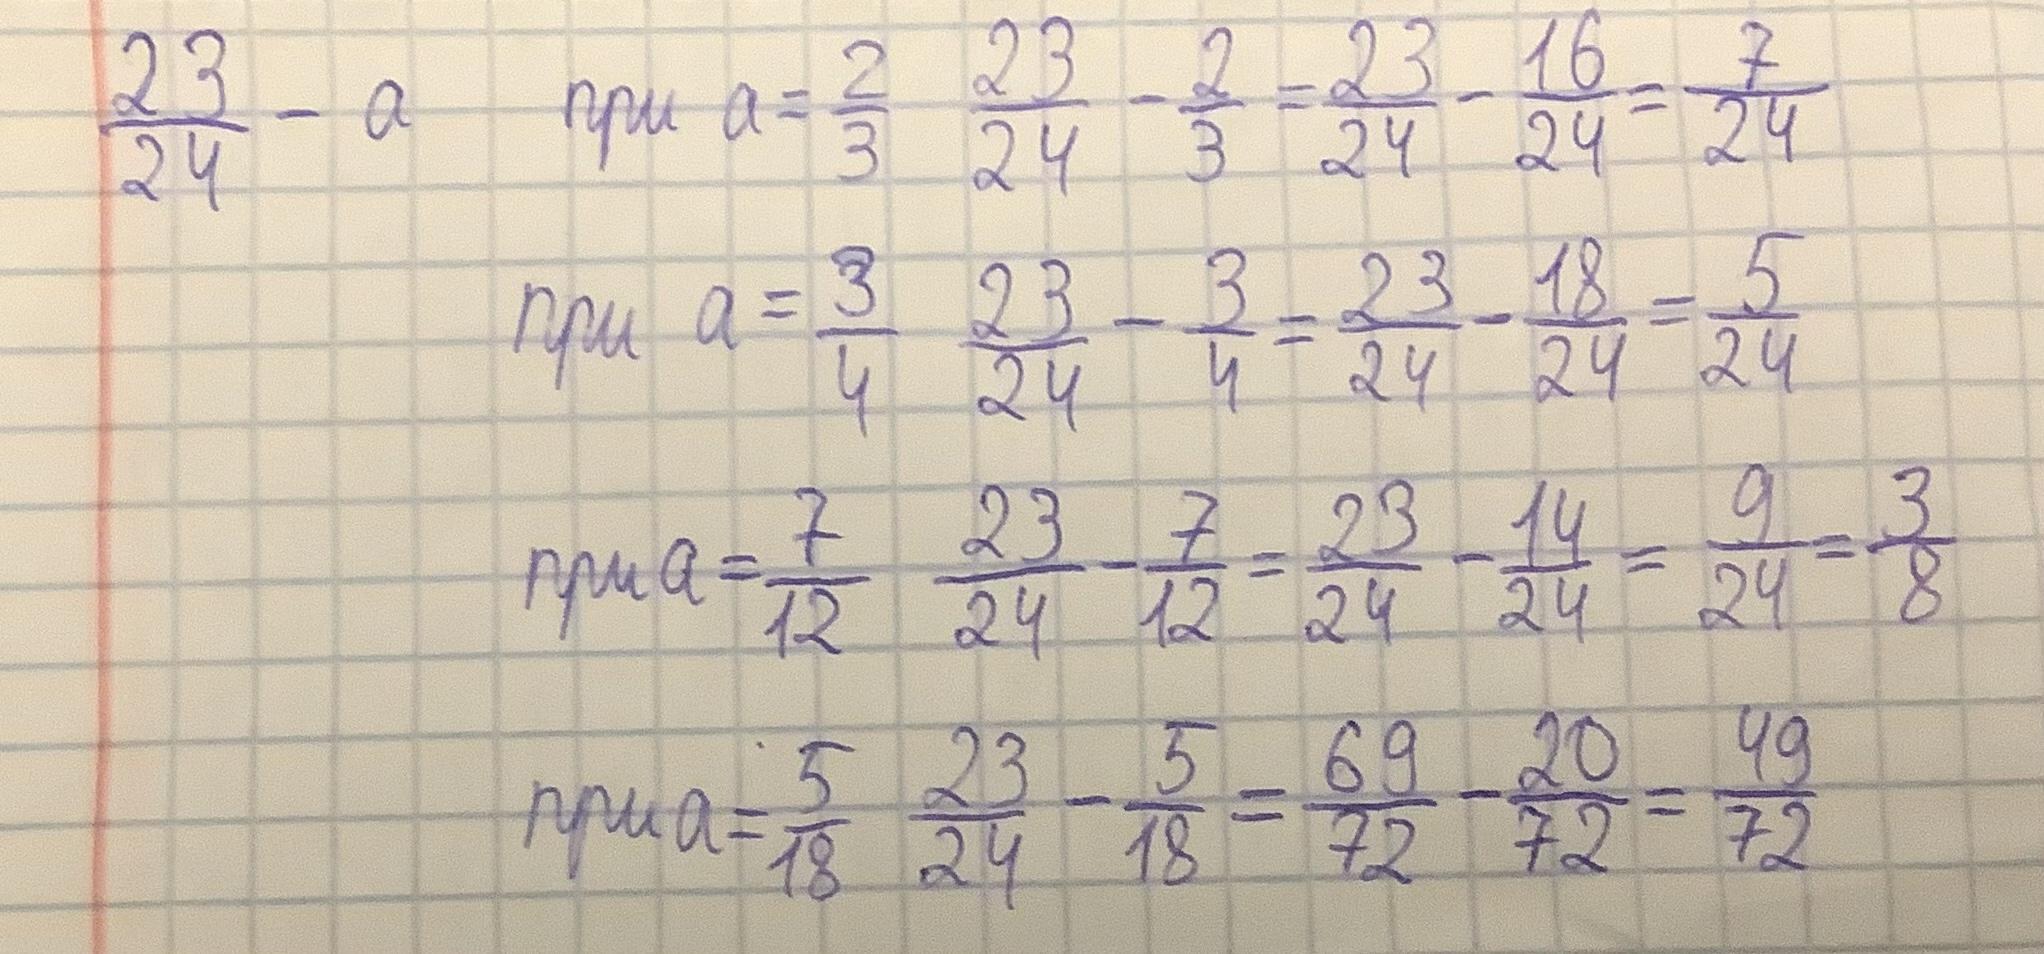 23/24 - a при a = 2/3 23/24 - 2/3 = 23/24 - 16/24 = 7/24
при a = 3/4 23/24 - 3/4 = 23/24 - 18/24 = 5/24
при a = 7/12 23/24 - 7/12 = 23/24 - 14/24 = 9/24 = 3/8
при a = 5/18 23/24 - 5/18 = 69/72 - 20/72 = 49/72